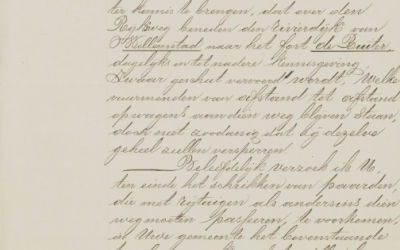 ter kennis te brengen, dat over den
Rijksweg beneden den rivierdijk van
Willemstad naar het fort "de Ruiter"
dagelijks en tot nadere kennisgeving
zwaar geschut vervoerd wordt, welke
vuurmonden van afstand tot afstand
op wagens aan dien weg blijven staan,
doch niet zoodanig dat zij dezelve
geheel zullen versperren
Beleefdelijk verzoek ik U,
ten einde het schrikken van paarden,
die met rijtuigen als anderszins dien
weg moeten passeren, te voorkomen,
in Uwe gemeente het bovenstaande